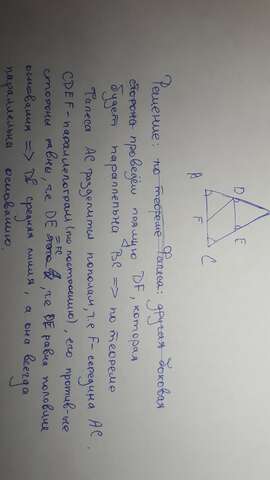 Решение: по теореме Фалеса: другая боковая
сторона проведём прямую DF, которая
будет параллельна BC => по теореме
Фалеса AC разделится пополам, т.е F- середина AC.
CDEF - параллелограм (по построению), его против-ые
стороны равны, т.е DE = FC, т.е DE равна половине
основания => DE средняя линия, а она всегда
параллельна основанию.
A
D
F
E
C